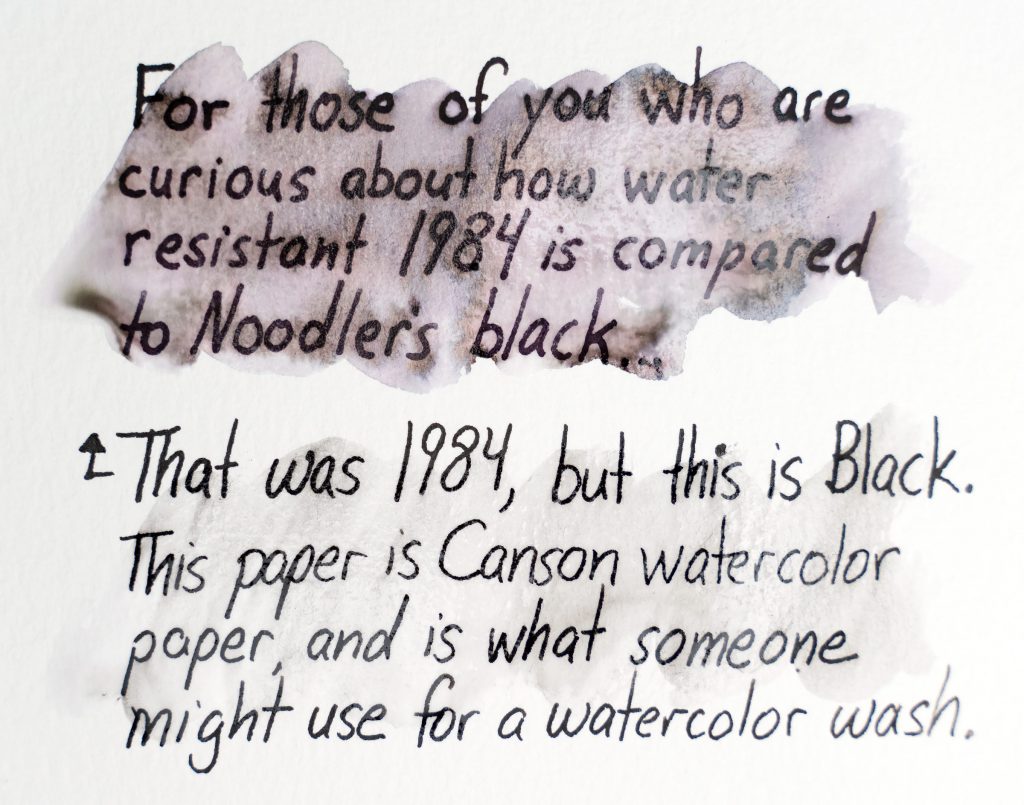 For those of you who are
curious about how water
resistant 1984 is compared
to Noodler's black...
↑ That was 1984, but this is Black.
This paper is Canson watercolor
paper, and is what someone
might use for a watercolor wash.